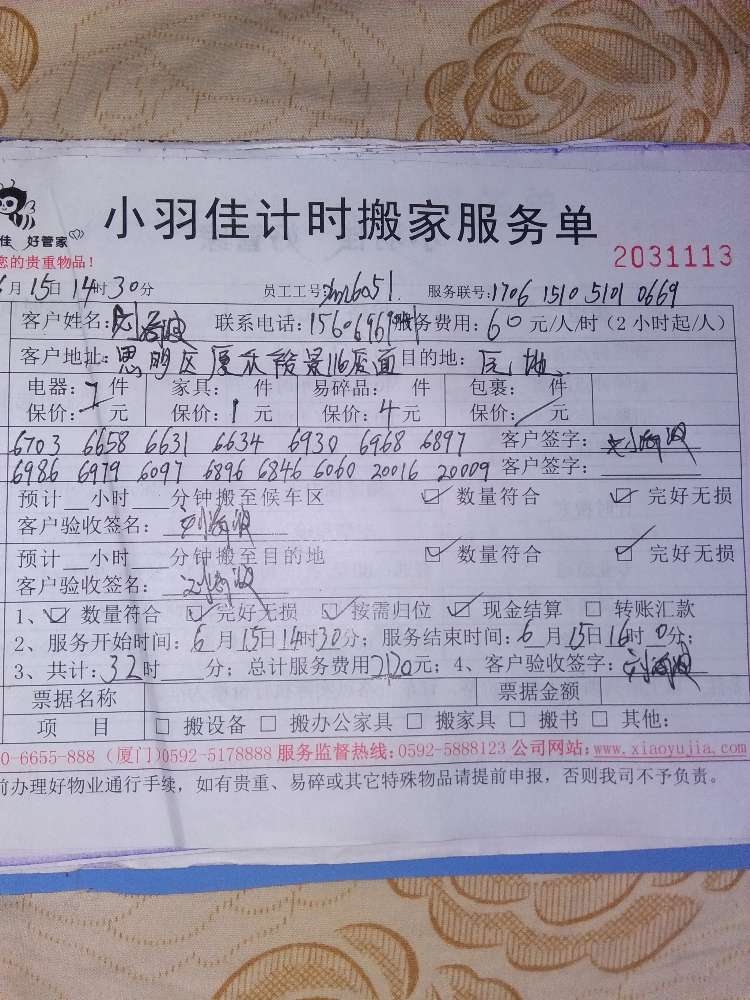 小羽佳计时搬家服务单
佳 好管家
2031113
您的贵重物品！
6月15日14时30分 员工工号： 6051 服务联号：1706 1510 5101 0669
客户姓名： 联系电话：15606969 服务费用：60元/人/时（2小时起/人）
客户地址：思明区 116 面 目的地：
电器： 件 家具： 件 易碎品： 件 包裹： 件
保价： 元 保价： 元 保价： 元 保价： 元
6703 6658 6631 6634 6930 6968 6897 客户签字：
6986 6979 6097 6896 6846 6060 20016 20009 客户签字：
预计__小时___分钟搬至候车区 ☑ 数量符合 ☑ 完好无损
客户验收签名：
预计__小时___分钟搬至目的地 ☑ 数量符合 ☑ 完好无损
客户验收签名：
1、☑ 数量符合 ☑ 完好无损 ☑ 按需归位 ☑ 现金结算 □ 转账汇款
2、服务开始时间：6月15日14时30分；服务结束时间：6月15日16时0分；
3、共计：32时____分；总计服务费用2120元；4、客户验收签字：
票据名称 票据金额
项 目 □ 搬设备 □ 搬办公家具 □ 搬家具 □ 搬书 □ 其他：
0-6655-888（厦门）0592-5178888 服务监督热线：0592-5888123 公司网站：www.xiaoyujia.com
前办理好物业通行手续，如有贵重、易碎或其它特殊物品请提前申报，否则我司不予负责。